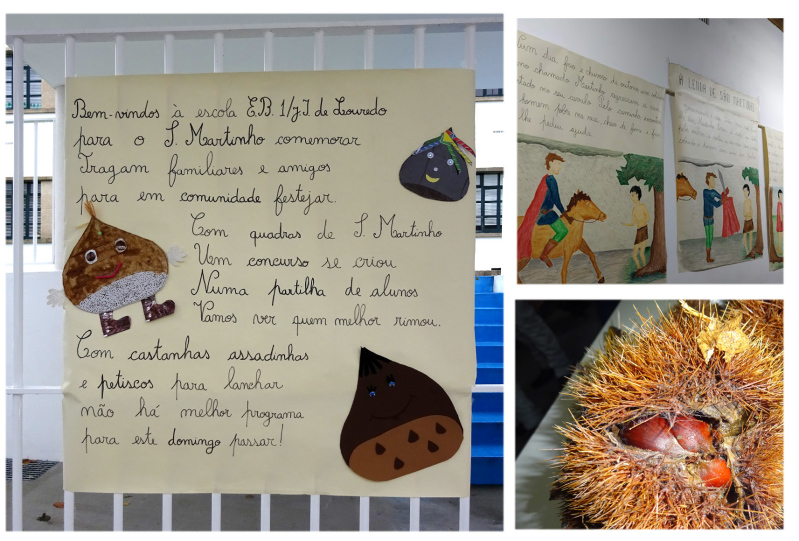 Bem-vindos à escola E.B. 1/J.I. de Louredo
para o S. Martinho comemorar
Tragam familiares e amigos
para em comunidade festejar.
Com quadras de S. Martinho
Um concurso se criou
Numa partilha de alunos
Vamos ver quem melhor rimou.
Com castanhas assadinhas
e petiscos para lanchar
não há melhor programa
para este domingo passar!
Num dia frio e chuvoso de outono um
chamado Martinho regressava
no seu cavalo. Pelo caminho
homem pobre na rua cheio de fome e frio
lhe pediu ajuda.
A LENDA DE SÃO MARTINHO